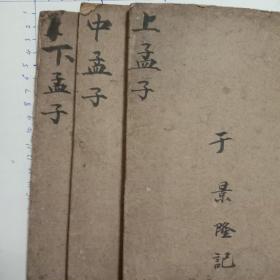 上孟子
于景隆記
中孟子
下孟子